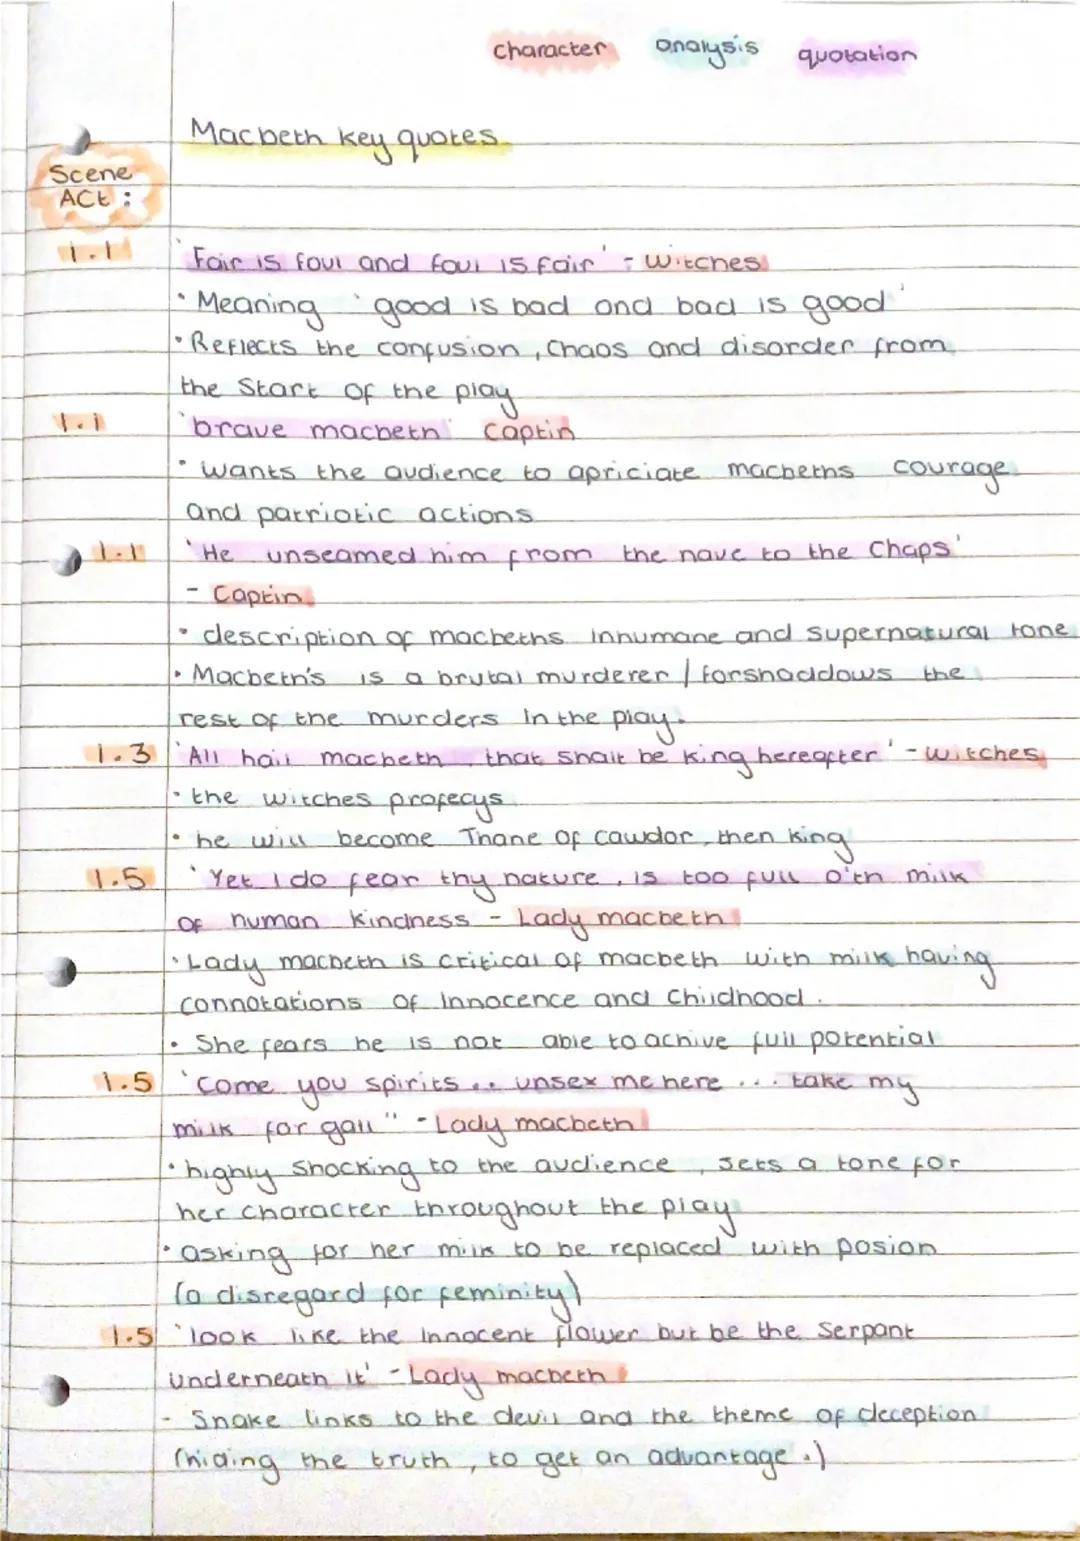 character analysis quotation
Macbeth key quotes
Scene
Act :
1.1 'Fair is foul and foul is fair' - Witches
• Meaning 'good is bad and bad is good'
• Reflects the confusion, Chaos and disorder from
the Start of the play
1.1 'brave macbeth' Captin
• wants the audience to apriciate macbeths courage
and patriotic actions
1.1 'He unseamed him from the nave to the Chaps'
- Captin
• description of macbeths innumane and supernatural tone
• Macbeth's is a brutal murderer / forshaddows the
rest of the murders in the play.
1.3 'All hail macbeth, that shalt be king hereafter' - Witches
• the witches profecys
• he will become Thane of Cawdor, then king
1.5 'Yet I do fear thy nature, is too full o'th milk
of human kindness - Lady macbeth
• Lady macbeth is critical of macbeth with milk having
connotations of innocence and Childhood.
• She fears he is not able to achive full potential
1.5 'Come you spirits... unsex me here ... take my
milk for gall" - Lady macbeth
• highly shocking to the audience, sets a tone for
her character throughout the play
• asking for her milk to be replaced with posion
(a disregard for feminity)
1.5 'look like the innocent flower but be the Serpant
underneath it' - Lady macbeth
- Snake links to the devil and the theme of deception
(hiding the truth, to get an advantage.)